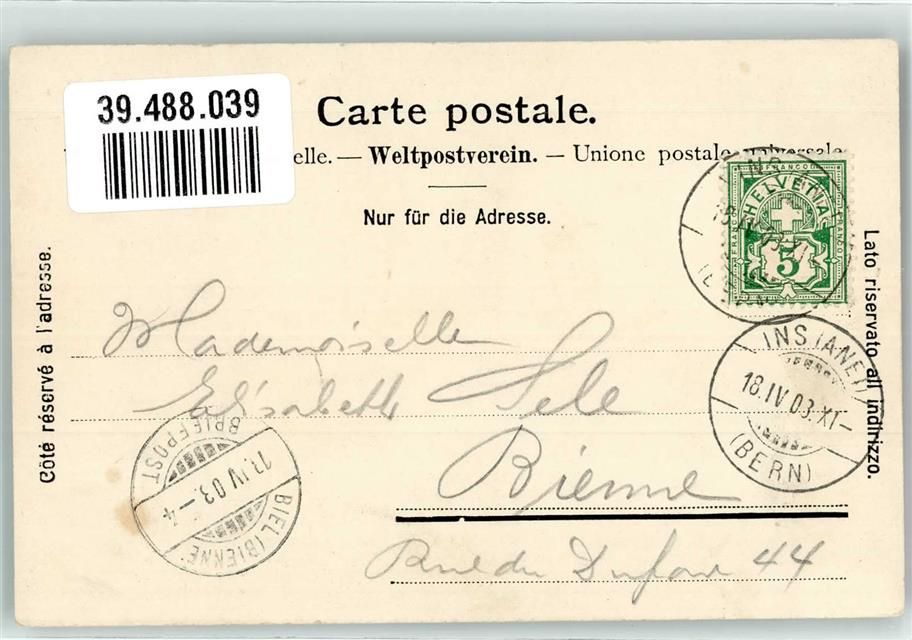 39.488.039
Carte postale.
elle. — Weltpostverein. — Unione postale universale
Nur für die Adresse.
Côté réservé à l'adresse.
Lato riservato all indirizzo.
FRANCO
HELVETIA
5
INS (ANET)
18.IV.03.XI–
(BERN)
Mademoiselle
Elisabeth
Bienne
Rue du Dufour 44
BRIEFPOST
IV 03.–4
BIEL (BIENNE)